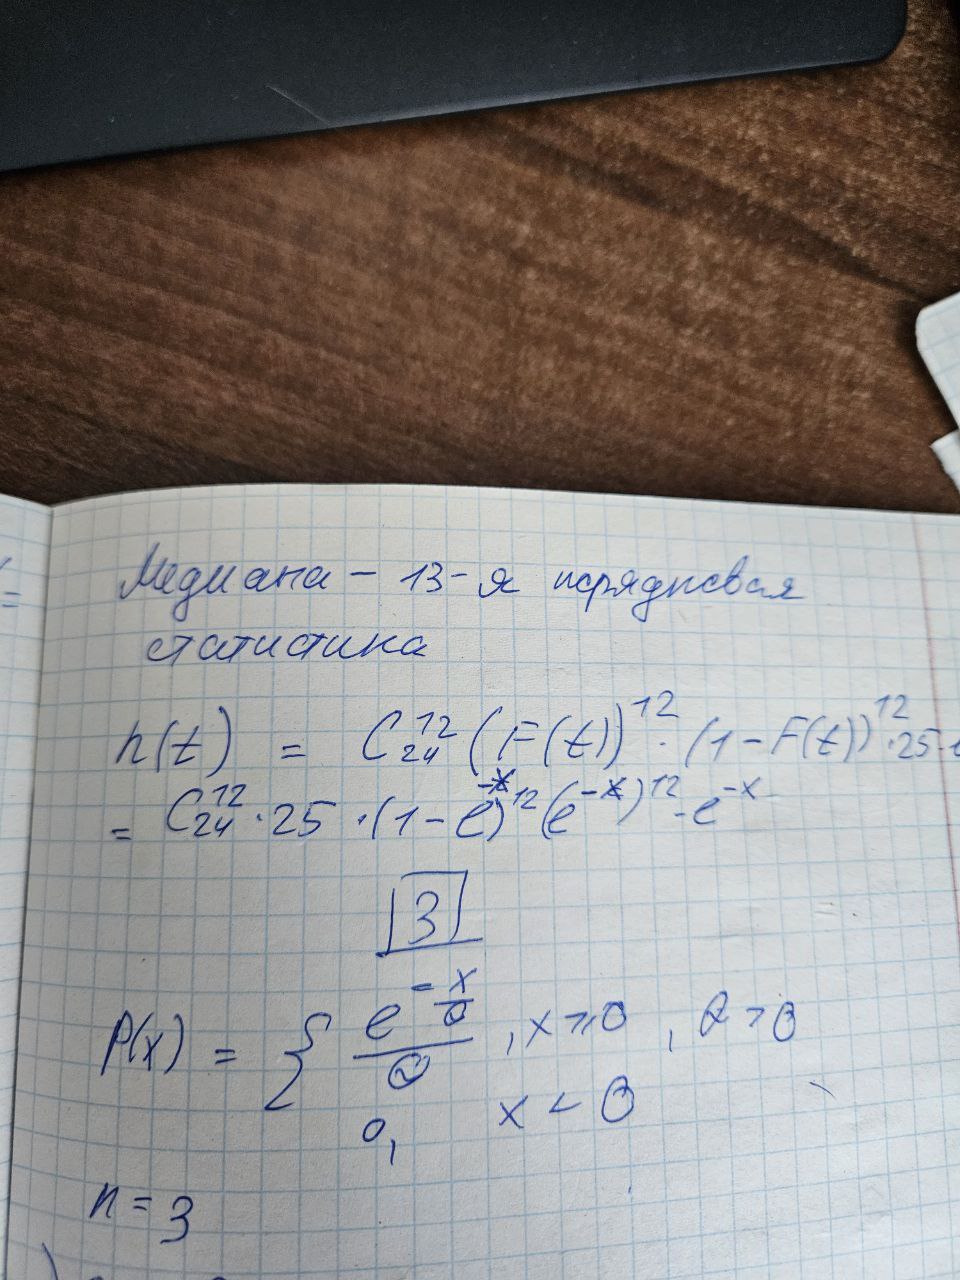 Медиана - 13-я порядковая
статистика
h(t) = C₂₄¹² (F(t))¹² · (1 - F(t))¹² · 25 ·
= C₂₄¹² · 25 · (1 - e⁻ˣ)¹² (e⁻ˣ)¹² · e⁻ˣ
3
P(x) = { e^(-x/θ) / θ , x ≥ 0 , θ > 0
0, x < 0
n = 3